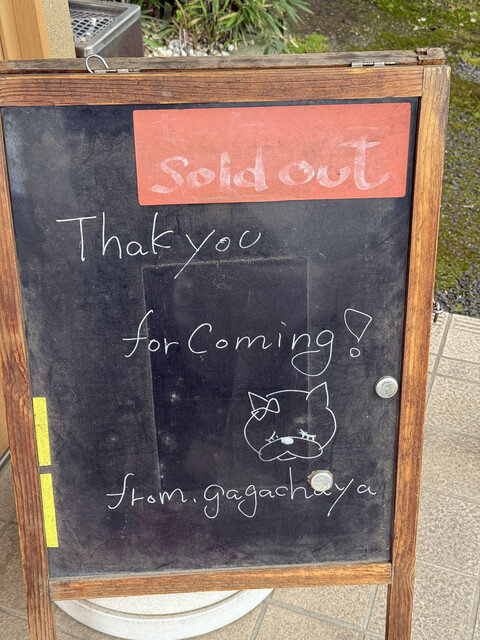 Sold out
Thak you
for Coming!
from. gagachaya